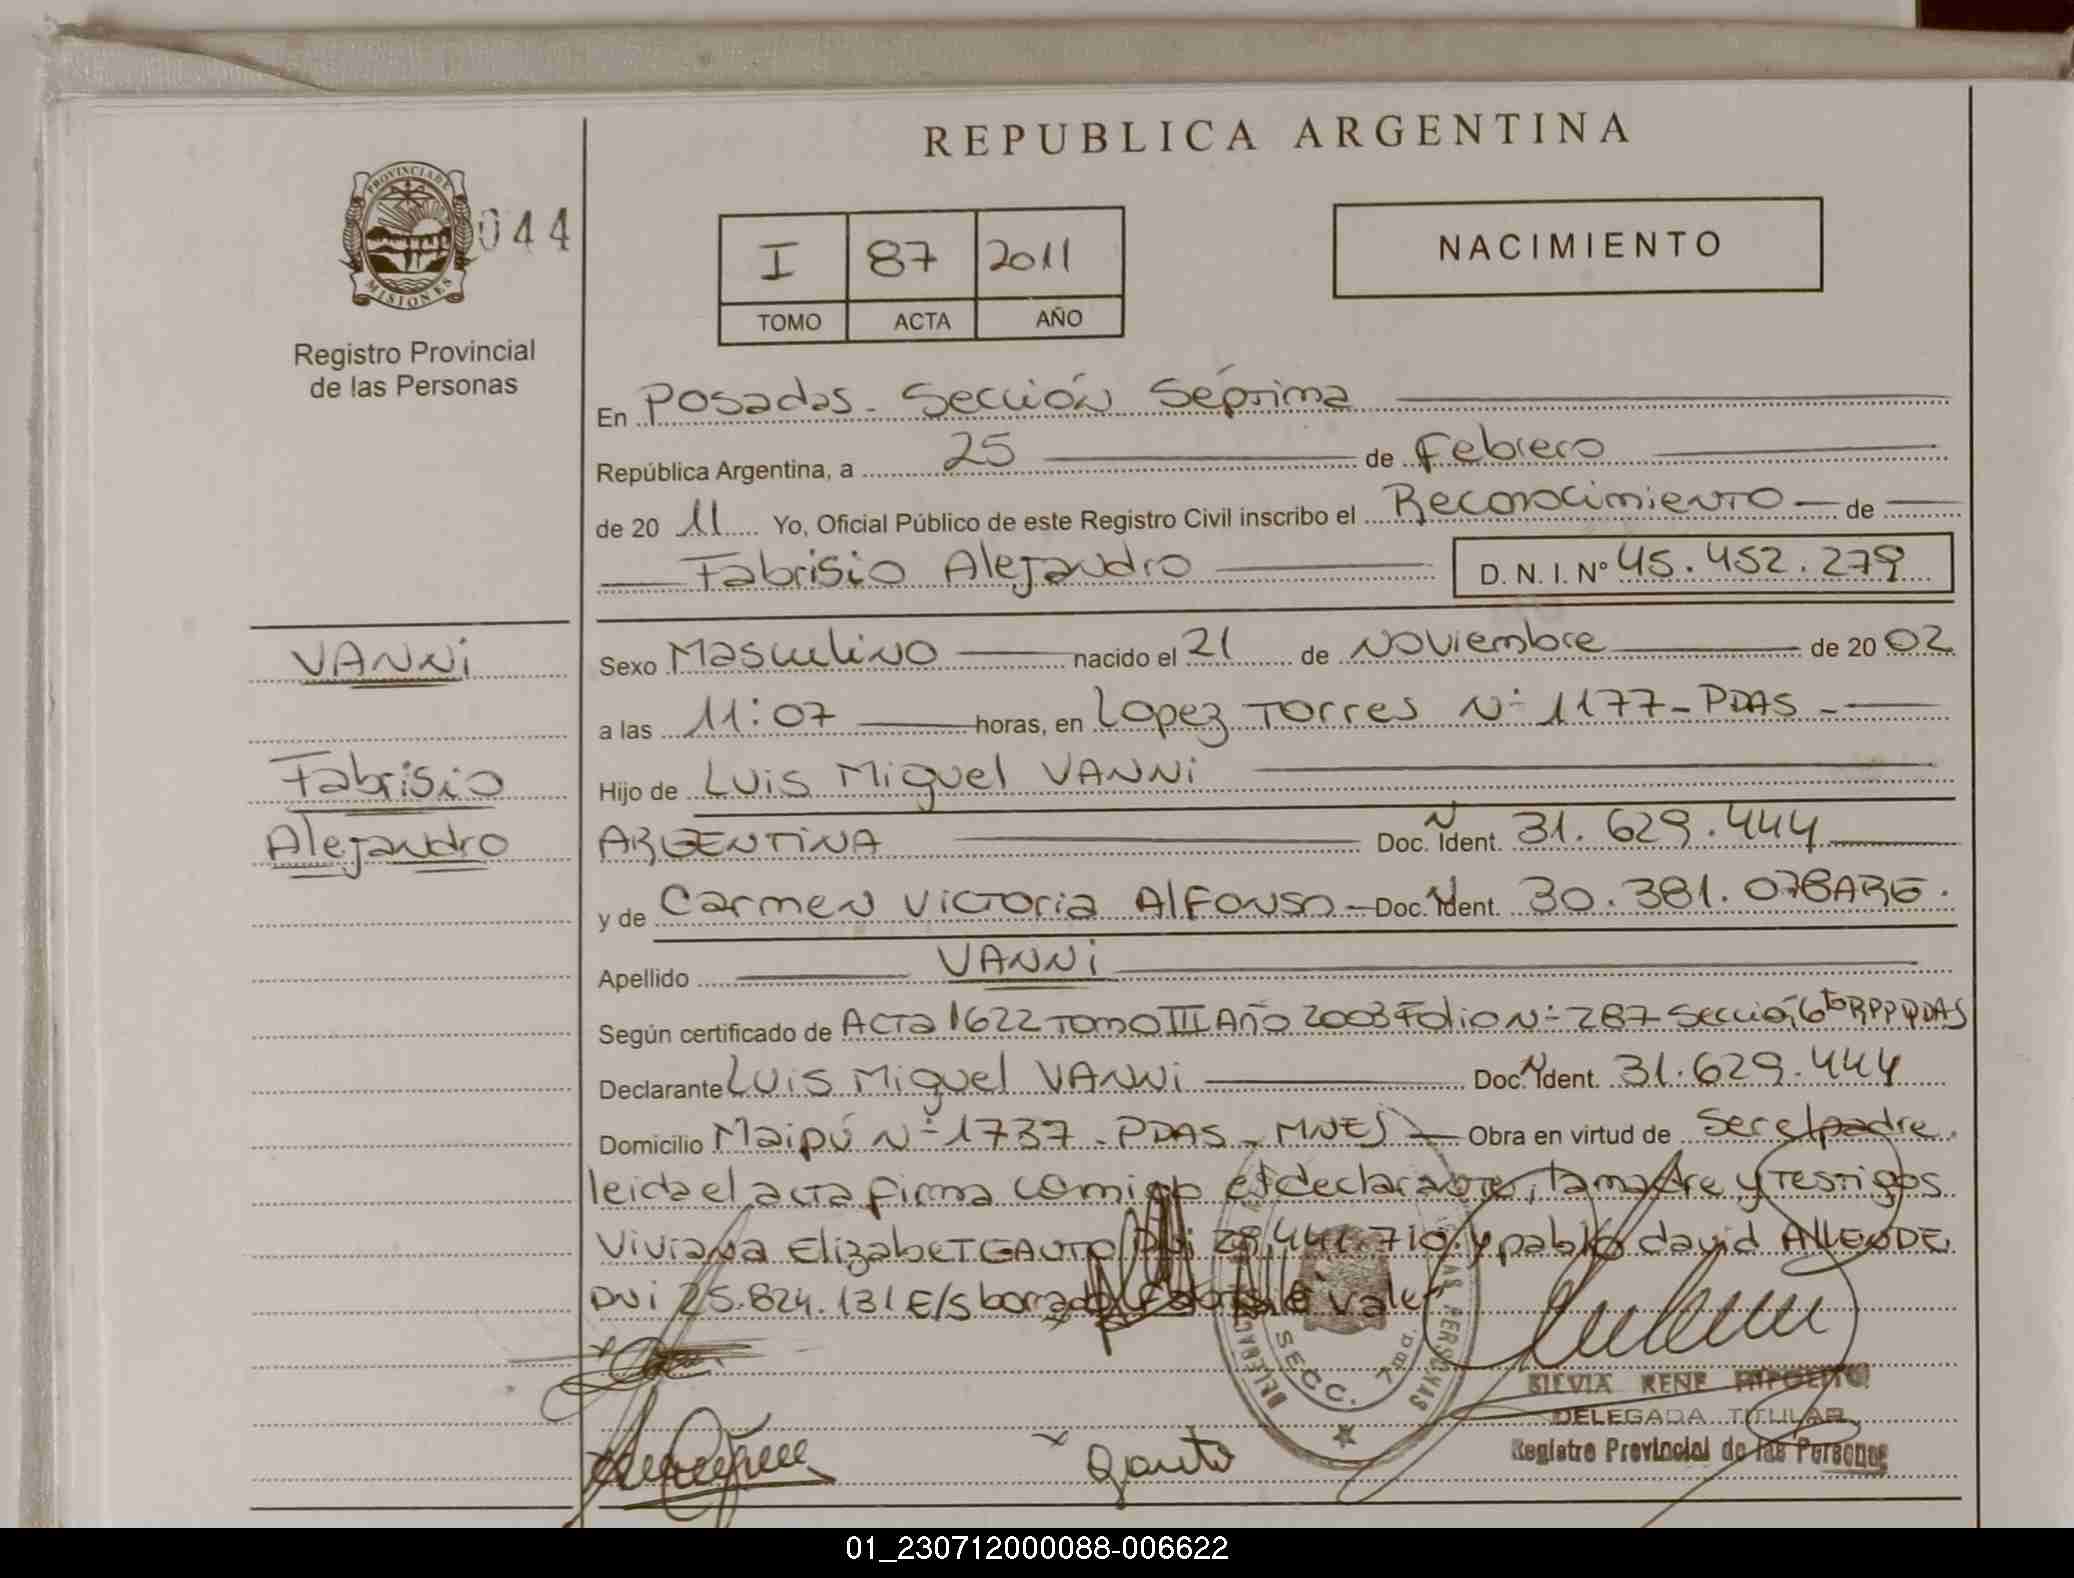 REPUBLICA ARGENTINA
PROVINCIA DE
MISIONES
044
Registro Provincial
de las Personas
I 87 2011
TOMO ACTA AÑO
NACIMIENTO
En Posadas - Sección Séptima
República Argentina, a 25 de Febrero
de 20 11 Yo, Oficial Público de este Registro Civil inscribo el Reconocimiento de
Fabrisio Alejandro D.N.I. Nº 45.452.279
VANNi
Fabrisio
Alejandro
Sexo Masculino nacido el 21 de Noviembre de 20 02
a las 11:07 horas, en Lopez Torres Nº 1177 - PDAS -
Hijo de Luis Miguel VANNi
ARGENTINA Doc. N Ident. 31.629.444
y de Carmen Victoria Alfonso Doc. N Ident. 30.381.078 ARG.
Apellido VANNi
Según certificado de Acta 1622 Tomo III Año 2003 Folio Nº 287 Sección 6ta RPP PDAS
Declarante Luis Miguel VANNi Doc. N Ident. 31.629.444
Domicilio Maipú Nº 1737 - PDAS - MNES Obra en virtud de ser el padre.
leida el acta firma comigo el declarante, la madre y testigos
Viviana Elizabet GAUTO DNi 28.441.710 y pablo david ALLENDE
DNi 25.824.131 E/S borrado Fabrisio vale
SECC. 7ma.
SILVIA RENE HIPOLITO
DELEGADA TITULAR
Registro Provincial de las Personas
Gauto
01_230712000088-006622